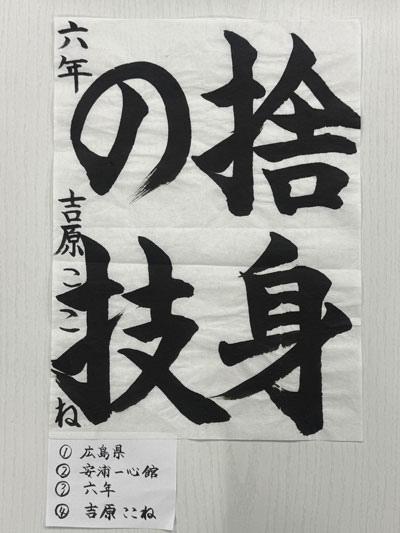 捨身
の技
六年 吉原ここね
① 広島県
② 安浦一心館
③ 六年
④ 吉原ここね